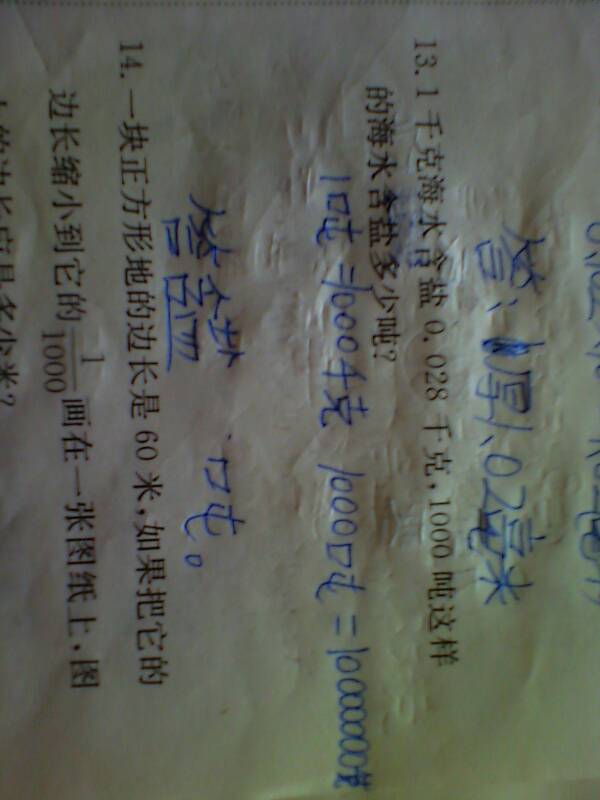 答、厚1.02毫米
13. 1千克海水含盐 0.028 千克,1000 吨这样
的海水含盐多少吨?
1吨=1000千克 1000吨=1000000
答含盐 吨。
14. 一块正方形地的边长是 60 米,如果把它的
边长缩小到它的 1/1000 画在一张图纸上,图
上的边长应是多少米?